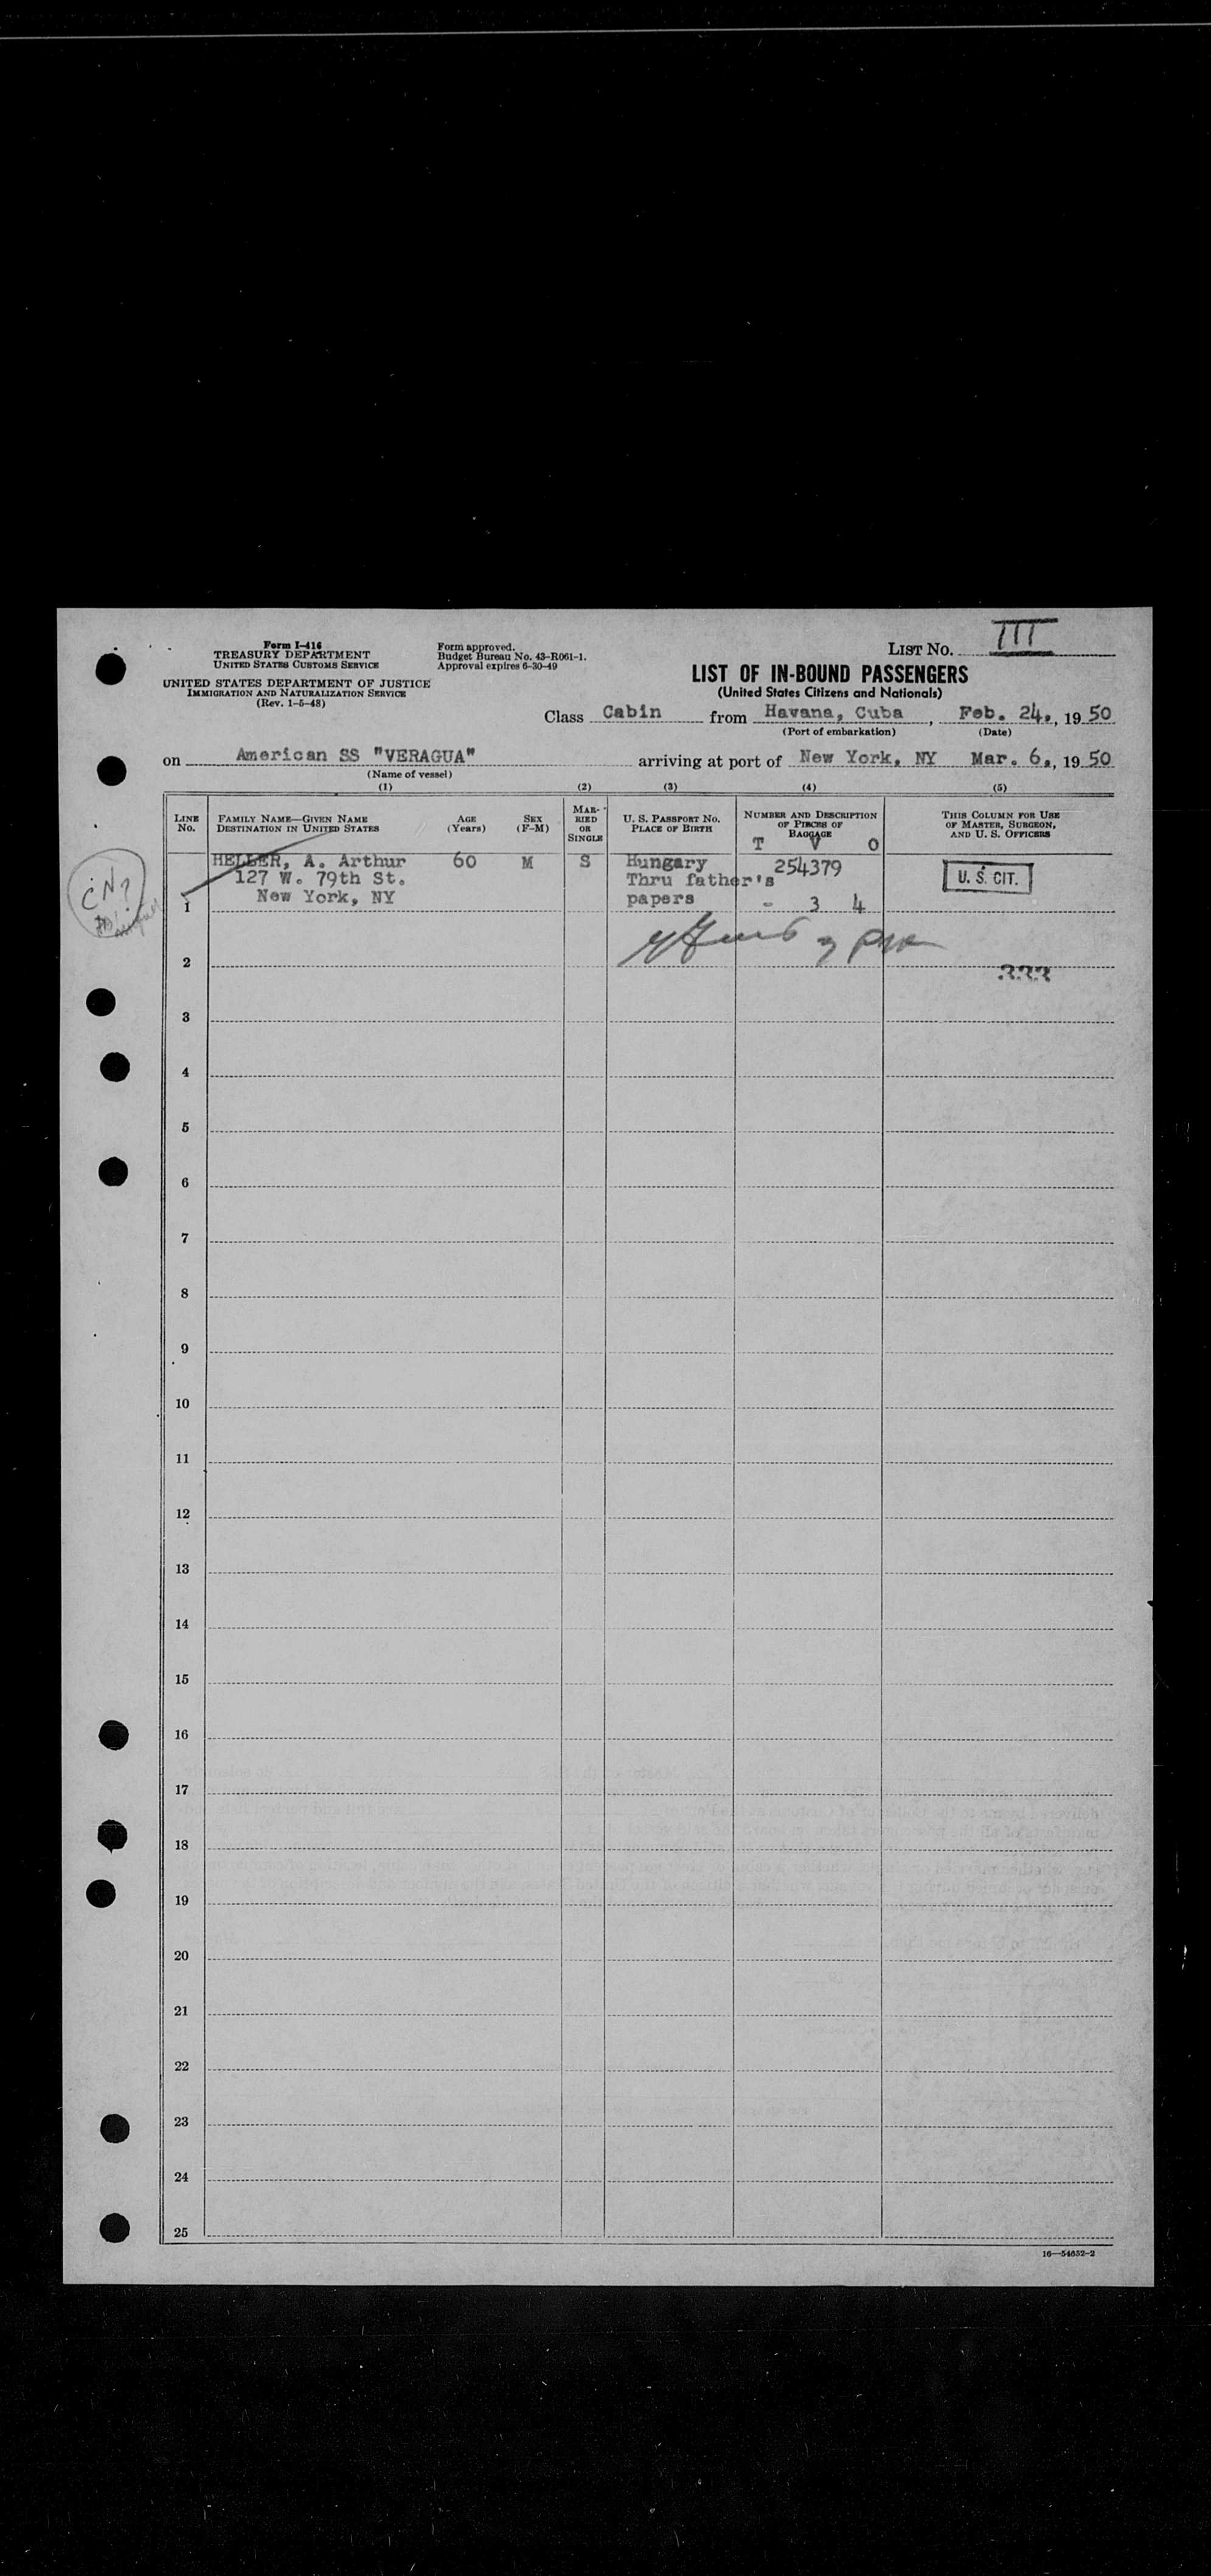 Form I-416
TREASURY DEPARTMENT
UNITED STATES CUSTOMS SERVICE
UNITED STATES DEPARTMENT OF JUSTICE
IMMIGRATION AND NATURALIZATION SERVICE
(Rev. 1-5-48)
Form approved.
Budget Bureau No. 43-R061-1.
Approval expires 6-30-49
LIST NO. III
LIST OF IN-BOUND PASSENGERS
(United States Citizens and Nationals)
Class Cabin from Havana, Cuba, Feb. 24., 1950
(Port of embarkation) (Date)
on American SS "VERAGUA" arriving at port of New York, NY Mar. 6., 1950
(Name of vessel)
(1) (2) (3) (4) (5)
LINE No.
FAMILY NAME—GIVEN NAME
DESTINATION IN UNITED STATES
AGE (Years)
SEX (F-M)
MARRIED OR SINGLE
U. S. PASSPORT NO.
PLACE OF BIRTH
NUMBER AND DESCRIPTION OF PIECES OF BAGGAGE
T V O
THIS COLUMN FOR USE OF MASTER, SURGEON, AND U. S. OFFICERS
HELLER, A. Arthur 60 M S Hungary 254379 U. S. CIT.
127 W. 79th St. Thru father's
1 New York, NY papers - 3 4
CN?
2
333
3
4
5
6
7
8
9
10
11
12
13
14
15
16
17
18
19
20
21
22
23
24
25
16—54652-2